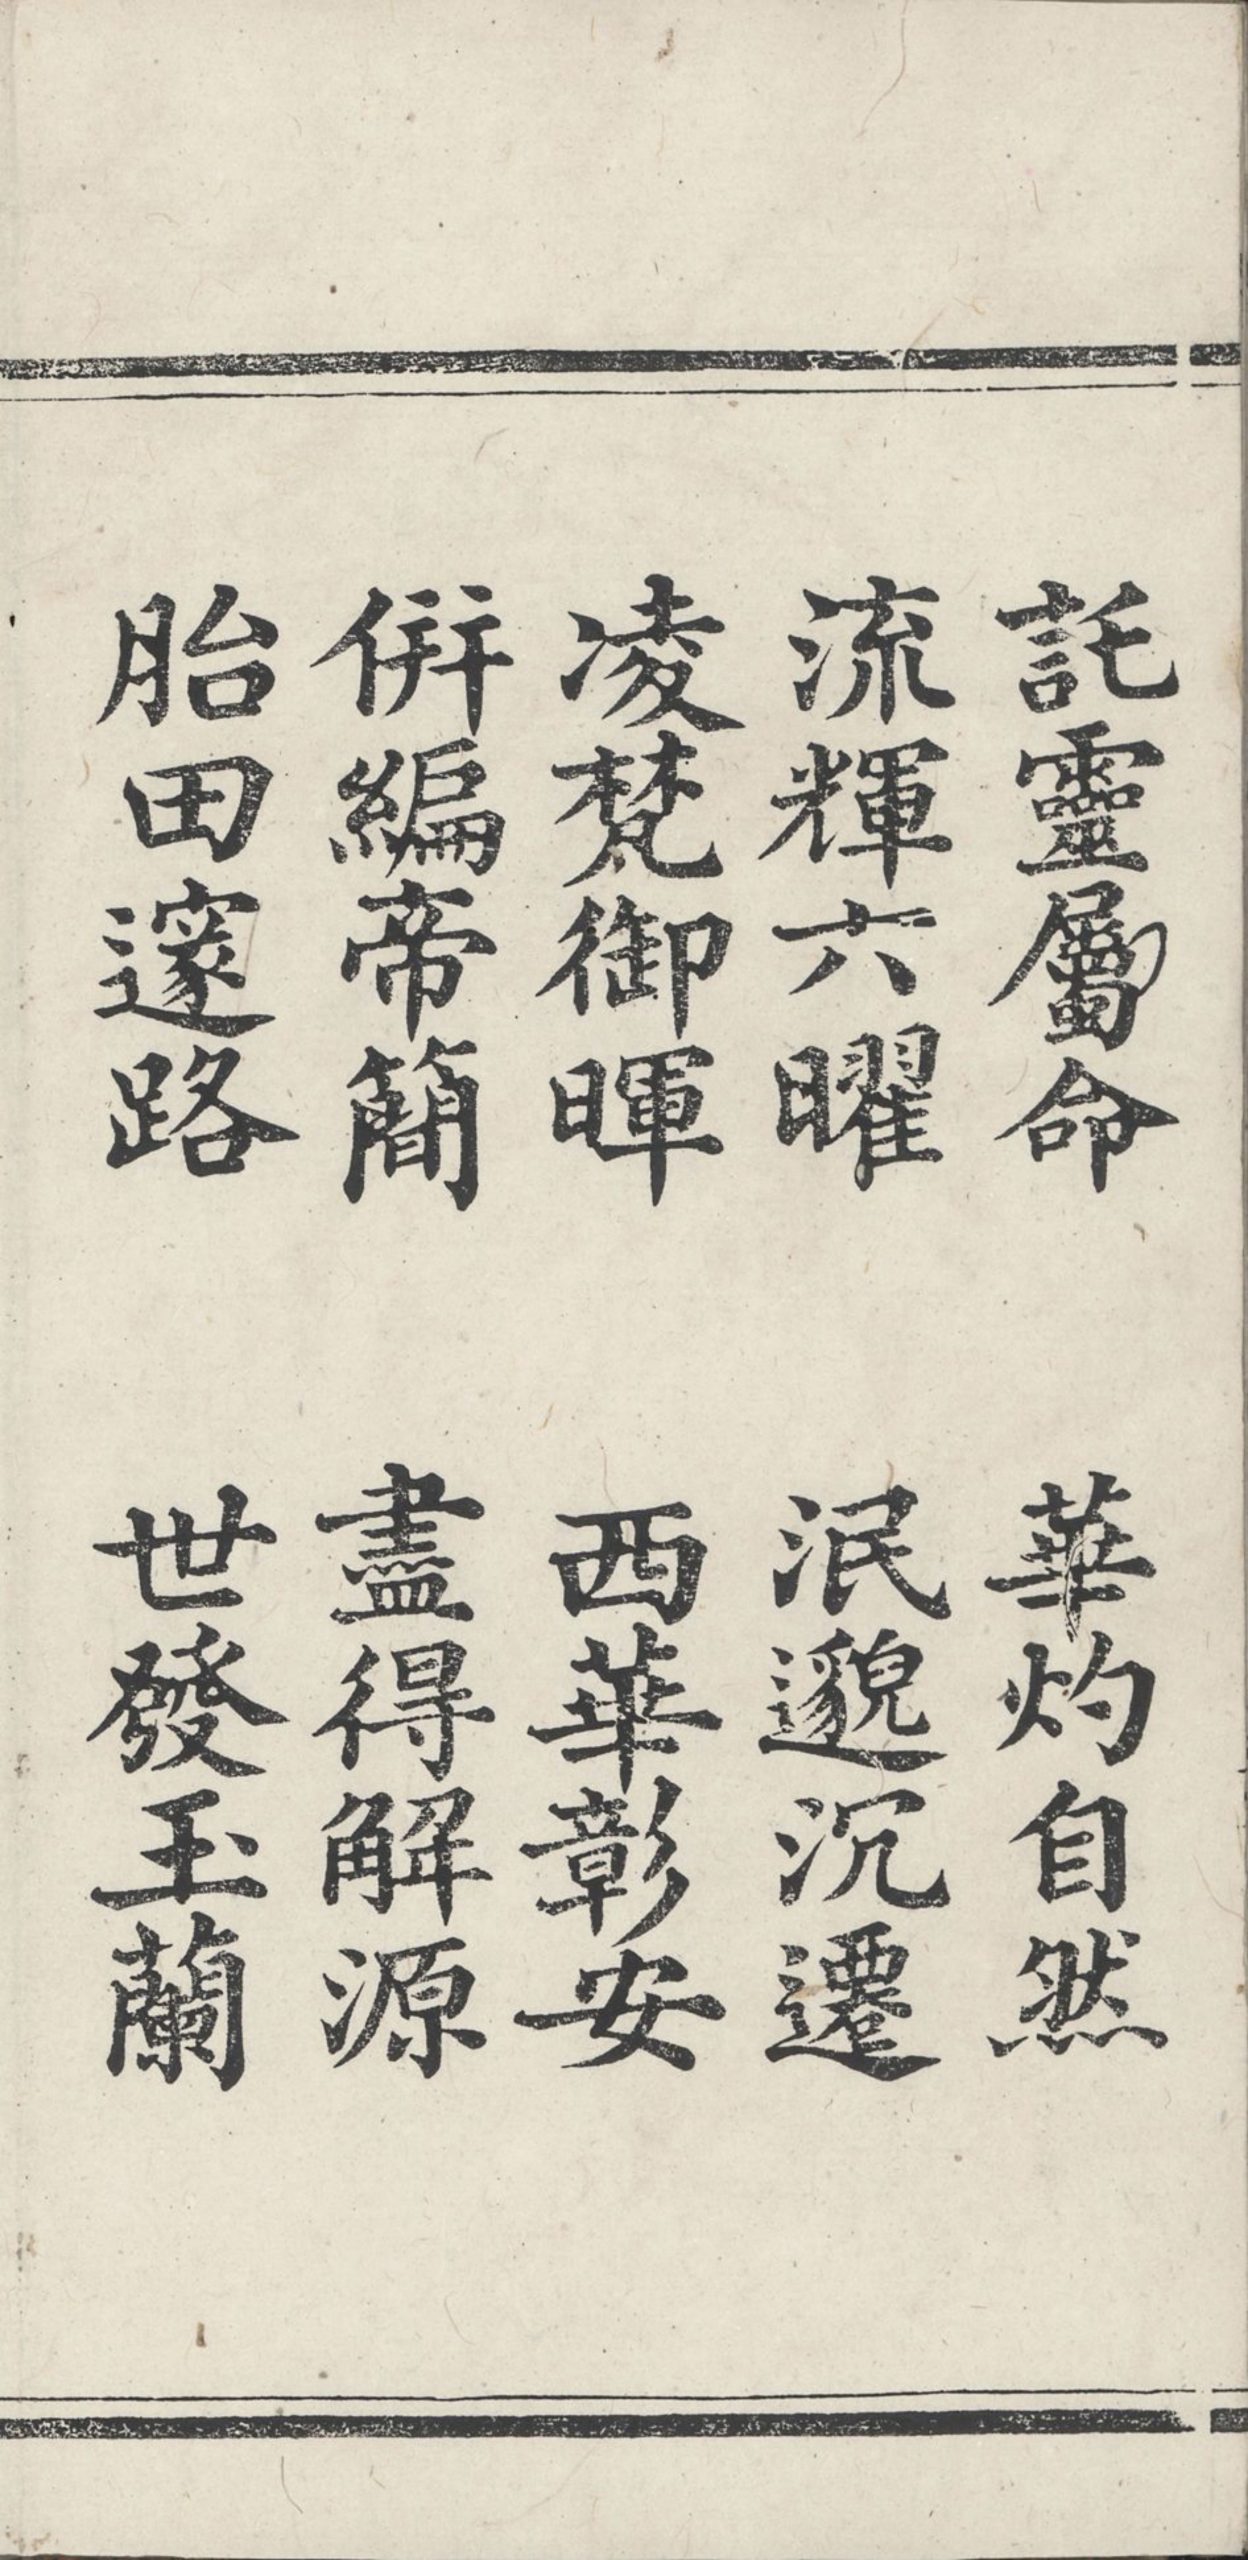 託靈屬命　華灼自然
流輝六曜　泯邈沉遷
凌梵御暉　西華彰安
併編帝簡　盡得解源
胎田邃路　世發玉蘭